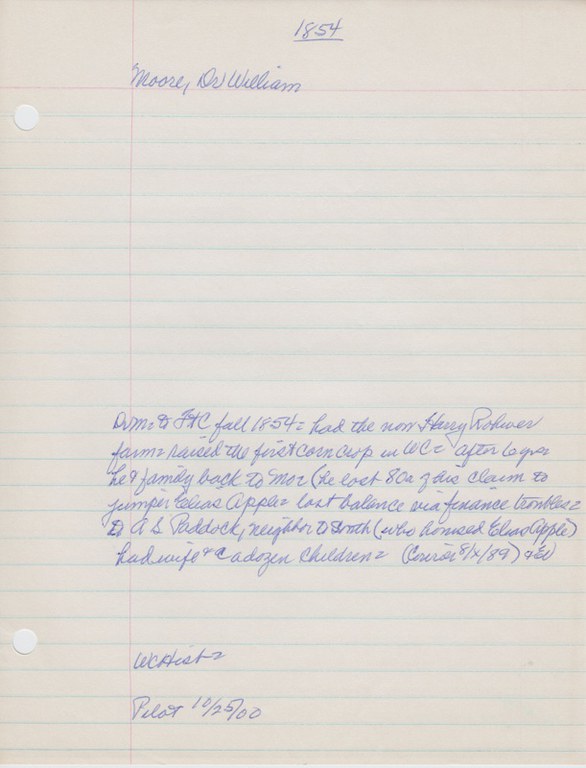 1854
Moore, Dr William
Dr M to FtC fall 1854 = had the now Harry Rohwer
farm = raised the first corn crop in WC = after 6 yrs
he & family back to Mo = (he lost 80a of his claim to
jumper Elias Apple = lost balance via finance troubles =
to A S Paddock, neighbor to South (who housed Elias Apple)
had wife & a dozen children = (Courier 8/x/89)
WCHist =
Pilot 10/25/00